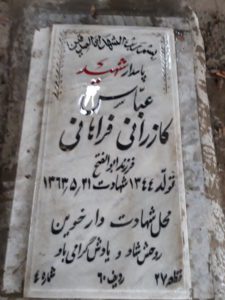 بسم رب الشهداء و الصدیقین
پاسدار شهید
عباس
کازرانی فراهانی
فرزند ابوالفتح
تولد ۱۳۴۴ شهادت ۱۳۶۳،۵،۲۱
محل شهادت دارخوین
روحش شاد و یادش گرامی باد
قطعه ۲۷ ردیف ۶۰ شماره ۴